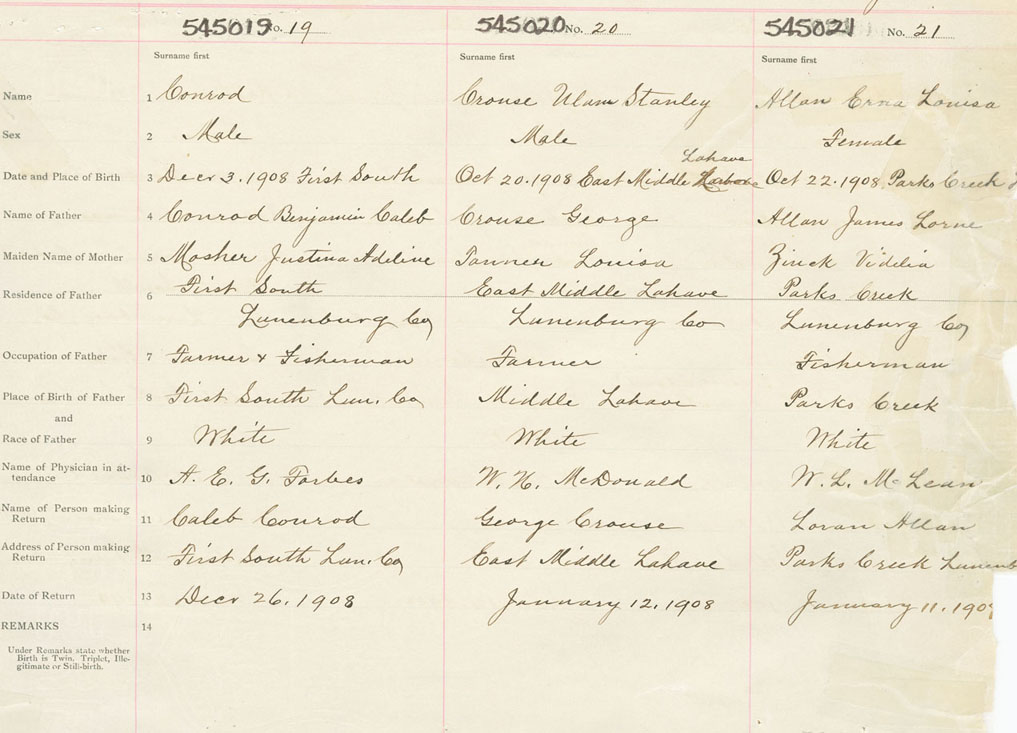 545019 No. 19 545020 No. 20 545021 No. 21
Surname first Surname first Surname first
Name 1 Conrod Crouse Ulam Stanley Allan Erna Louisa
Sex 2 Male Male Female
Lahave
Date and Place of Birth 3 Decr 3. 1908 First South Oct 20. 1908 East Middle Harbour Oct 22. 1908 Parks Creek
Name of Father 4 Conrod Benjamin Caleb Crouse George Allan James Lorne
Maiden Name of Mother 5 Mosher Justina Adeline Tanner Louisa Zinck Videlia
Residence of Father 6 First South East Middle Lahave Parks Creek
Lunenburg Co Lunenburg Co Lunenburg Co
Occupation of Father 7 Farmer & Fisherman Farmer Fisherman
Place of Birth of Father 8 First South Lun. Co Middle Lahave Parks Creek
and
Race of Father 9 White White White
Name of Physician in at-
tendance 10 A. E. G. Forbes W. H. McDonald W. L. McLean
Name of Person making
Return 11 Caleb Conrod George Crouse Loran Allan
Address of Person making
Return 12 First South Lun. Co East Middle Lahave Parks Creek Lunenb
Date of Return 13 Decr 26. 1908 January 12. 1908 January 11. 190
REMARKS 14
Under Remarks state whether
Birth is Twin. Triplet, Ille-
gitimate or Still-birth.